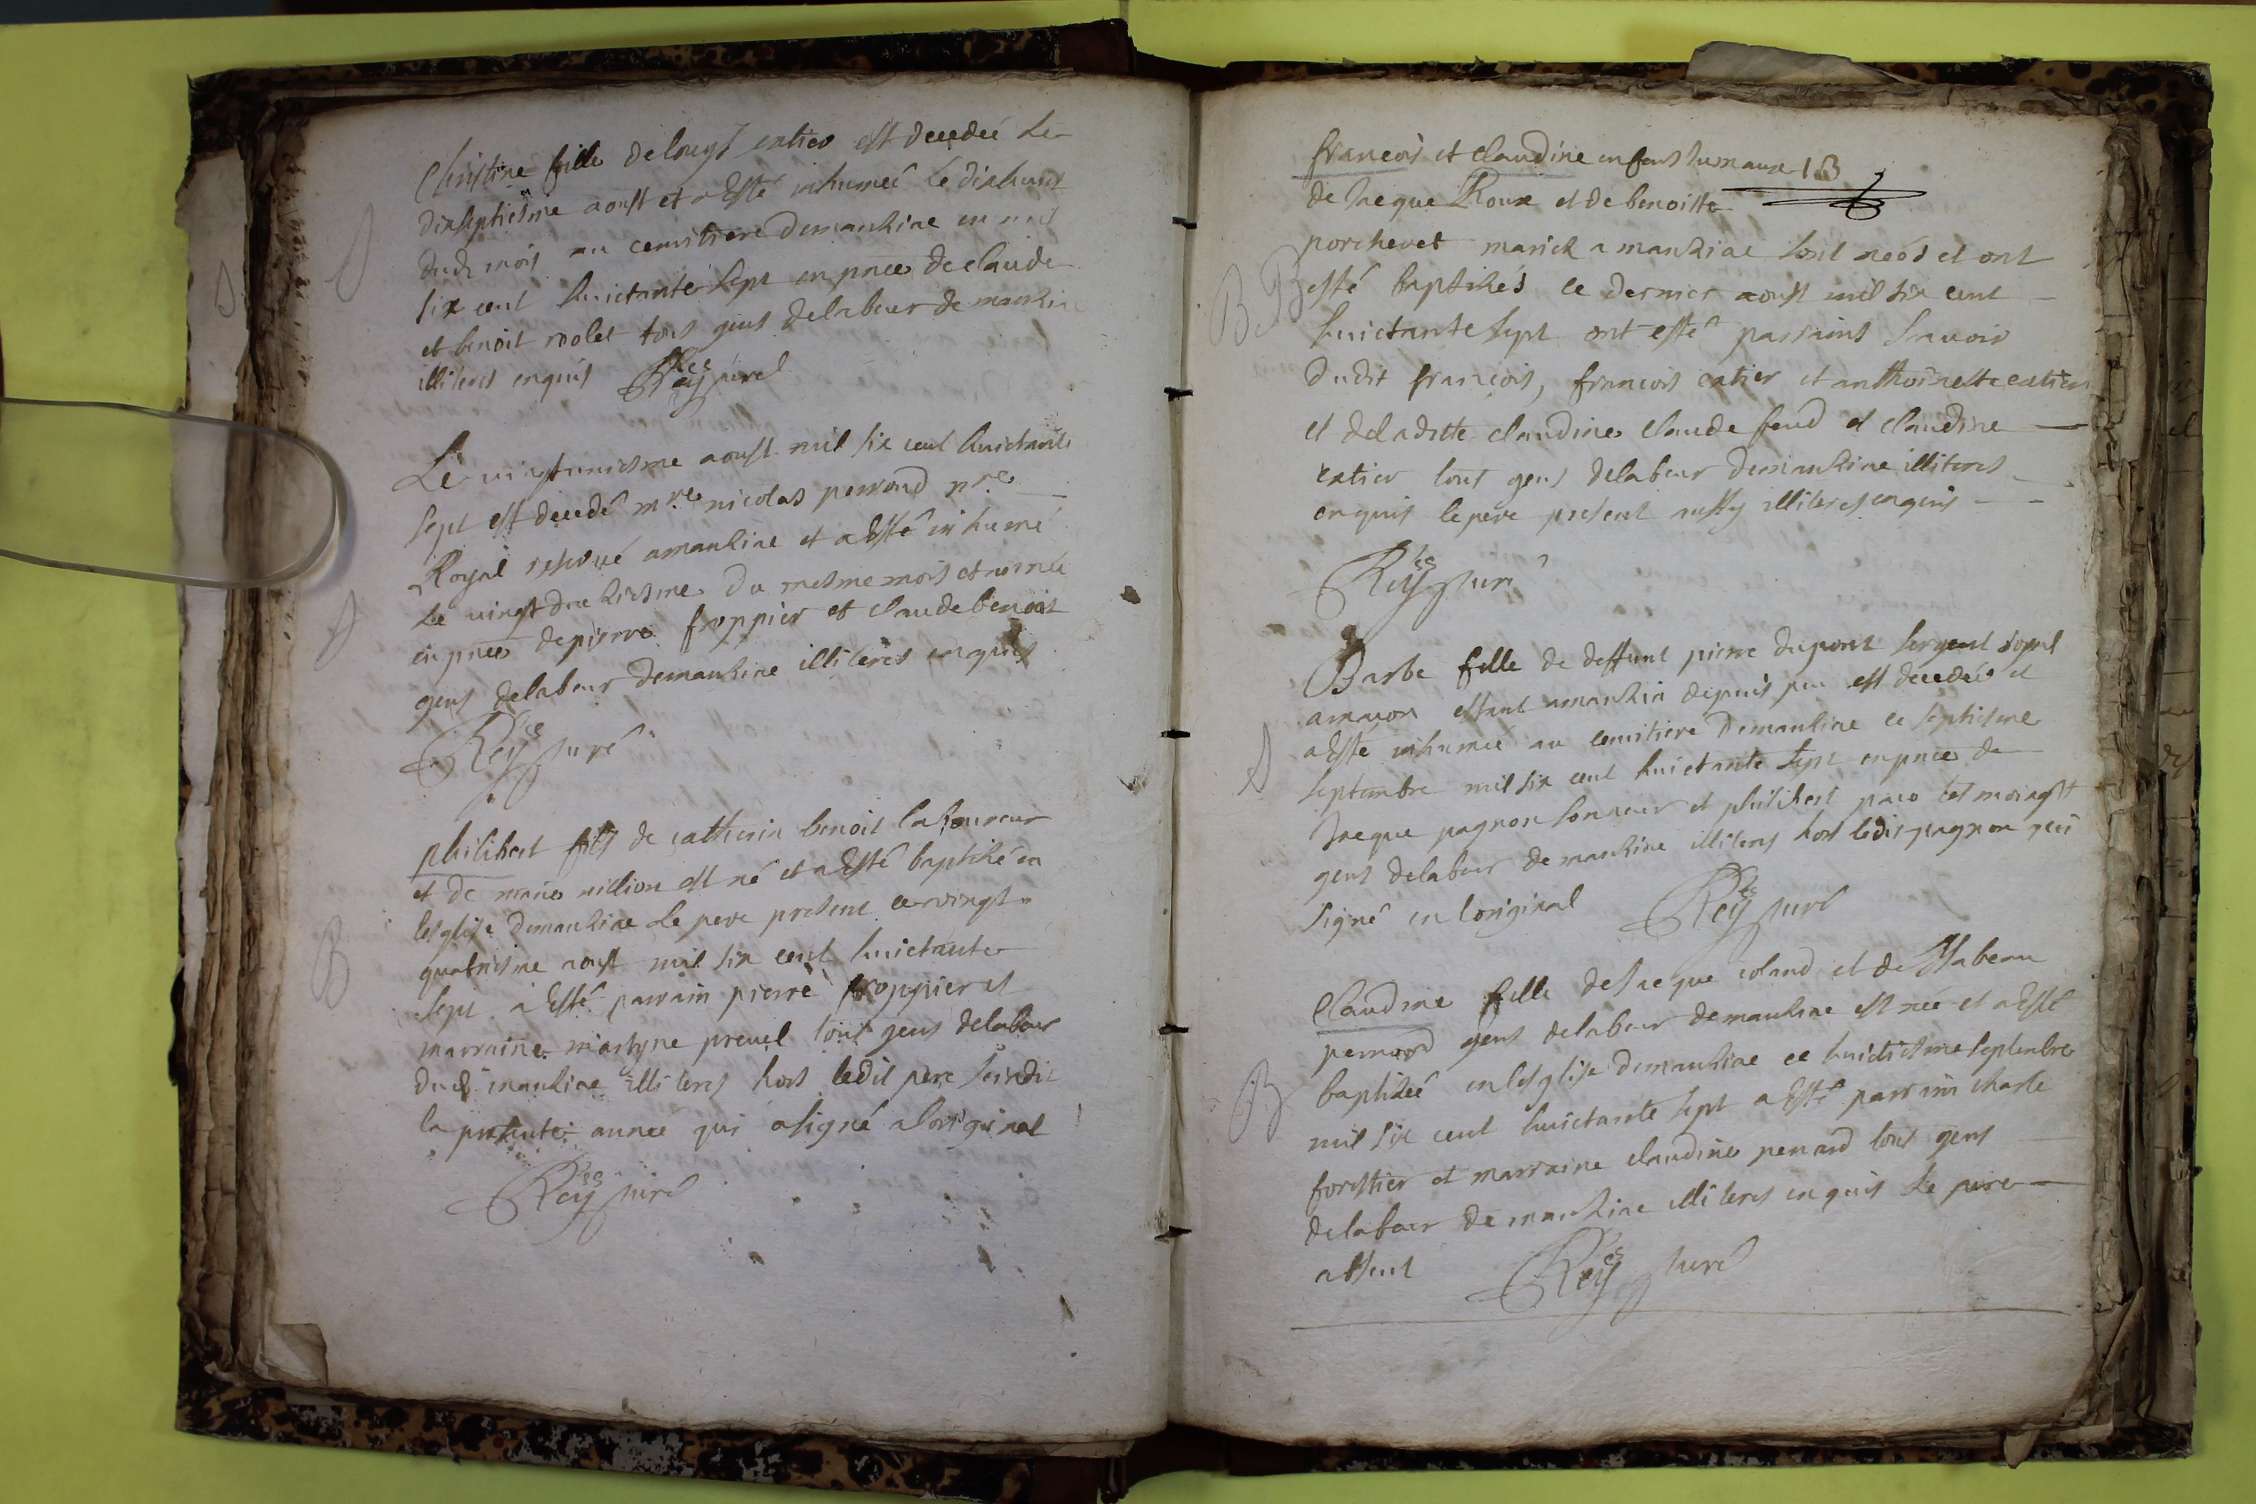 Christine fille de louys catier est decedée Le
dixseptiesme aoust et a Esté inhumeé le dixhuict
dud mois au cemitiere demanziac en mil
six cent huictante sept en pnce de claude
et benoit rolet tous gens delabeur de manzia
illiteres enquis Rey curé
Le vingtuniesme aoust mil six cent huictante
sept est decedé mre nicolas perrond nre
Royal reservé amanziac et a Esté inhumé
Le vingt deuziesme du mesme mois et année
en pnce de pierre froppier et claude benoit
gens delabeur demanziac illiteres enquis
Rey curé
B
philibert fils de catherin benoit laboureur
et de marie million est né et a Esté baptizé en
lesglise demanziac Le pere present ce vingt
quatriesme aoust mil six cent huictante
sept a Esté parrain pierre froppier et
marraine martyne prevel tous gens delabeur
dud manziac illiteres hors ledit pere scindic
la presente année qui a signé aloriginal
Rey curé
francois et claudine enfans iumaux 13
de Jaeque Roux et de benoitte
porchevet mariez a manziac sont neés et ont
B B esté baptizés ce dernier aoust mil six cent
huictante sept ont esté parrains scavoir
dudit francois, francois catier et anthoinette catier
et deladitte claudine claude feud et claudine
catier tous gens delabeur demanziac illiteres
enquis le pere present aussy illiteres enquis
Rey curé
Barbe fille de deffunt pierre dupont sergent royal
amacon estant amanzia depuis peu est decedée et
a Esté inhumeé au cemitiere demanziac ce septiesme
septembre mil six cent huictante sept en pnce de
Jaeque pagnon sonneur et philibert
gens delabeur de manziac illiteres hors ledit pagnon qui
signé en loriginal Rey curé
Claudine fille de Jaeque coland et de Ysabeau
perrond gens delabeur demanziac est née et a Esté
B baptizeé en lesglise demanziac ce huictiesme septembre
mil six cent huictante sept a Esté parrain charle
forestier et marraine claudine penard tous gens
delabeur de manziac illiteres enquis Le pere
absent Rey curé